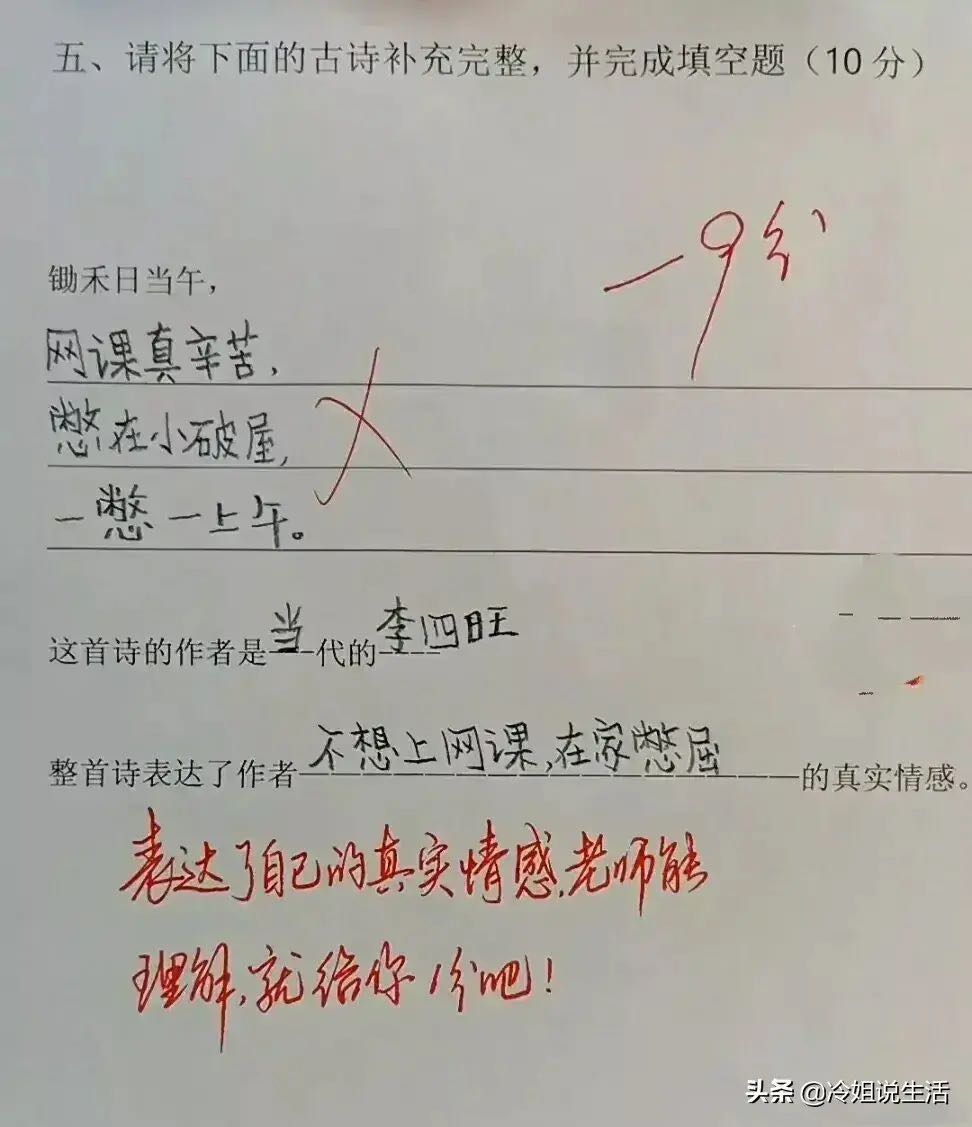 五、请将下面的古诗补充完整，并完成填空题（10分）
一9分
锄禾日当午，
网课真辛苦，
憋在小破屋，
一憋一上午。
这首诗的作者是当代的李四旺
整首诗表达了作者不想上网课，在家憋屈的真实情感。
表达了自己的真实情感，老师能
理解，就给你1分吧！
头条 @冷姐说生活